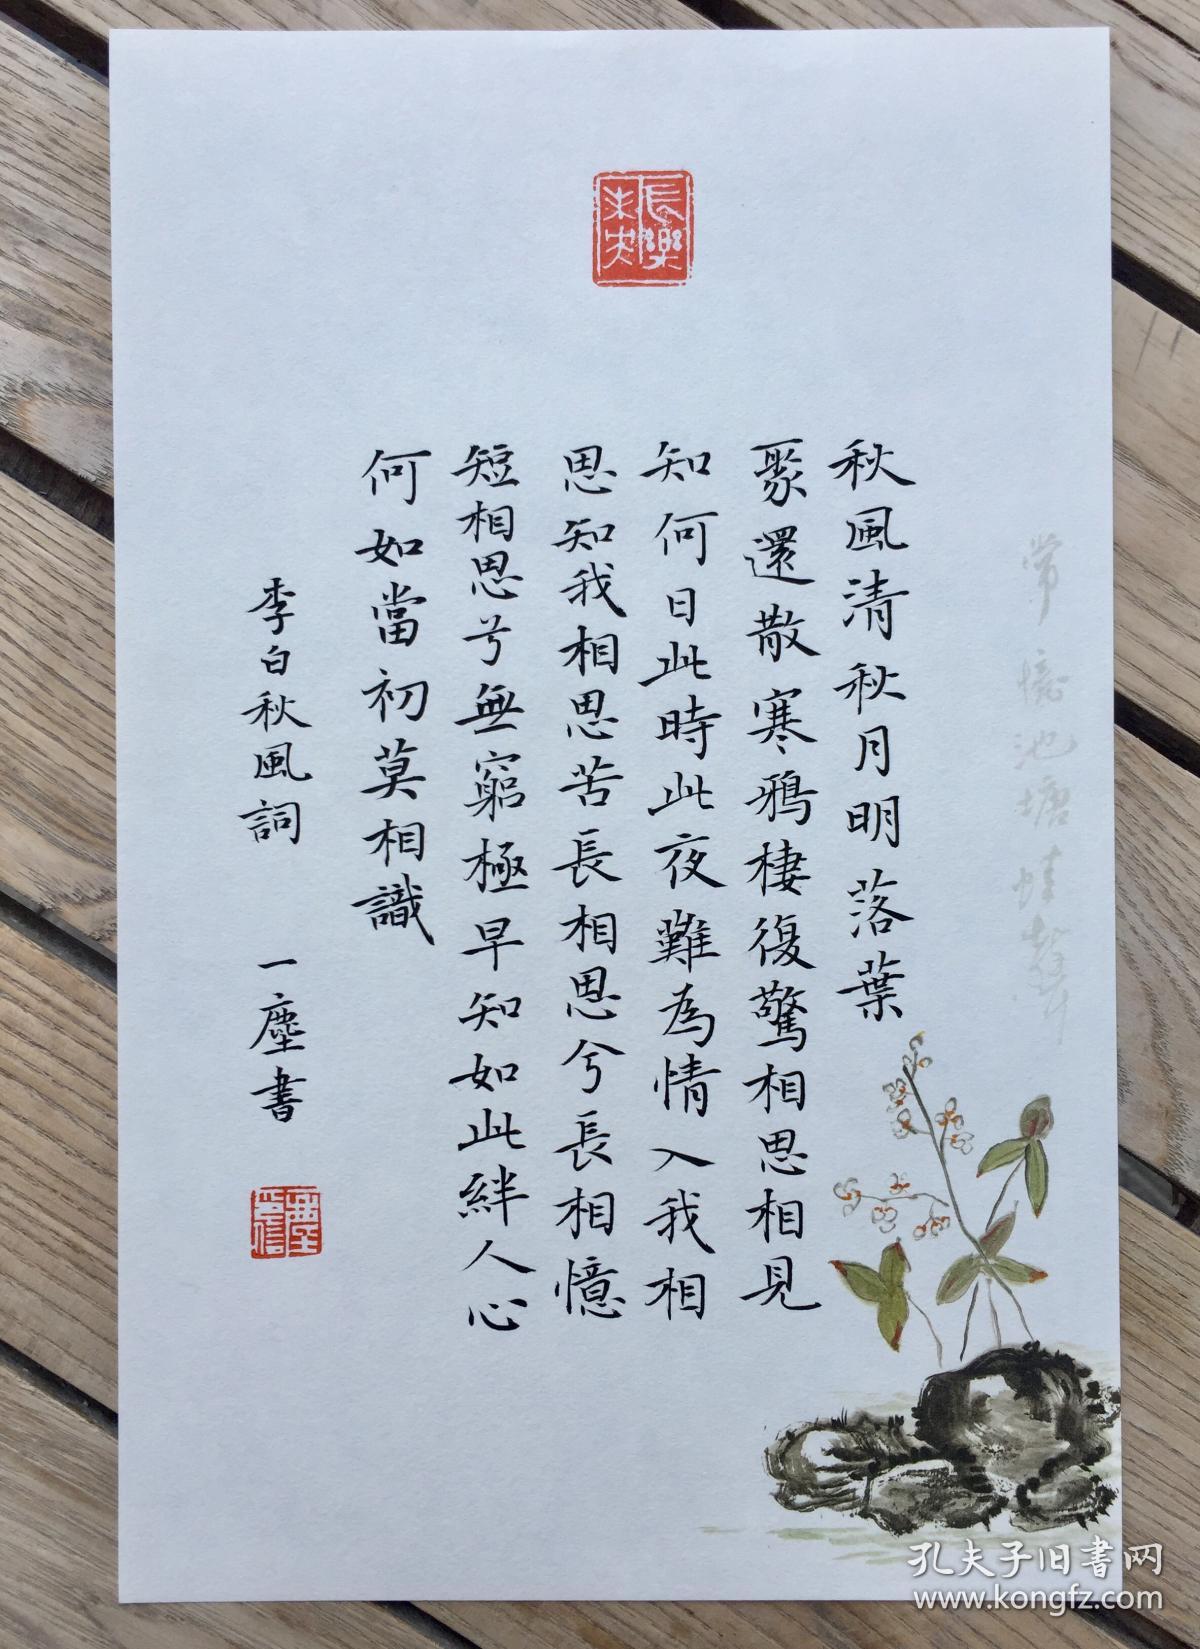 長樂未央
常憶池塘蛙聲
秋風清秋月明落葉
聚還散寒鴉棲復驚相思相見
知何日此時此夜難為情入我相
思知我相思苦長相思兮長相憶
短相思兮無窮極早知如此絆人心
何如當初莫相識
李白秋風詞 一塵書
孔夫子旧书网
www.kongfz.com